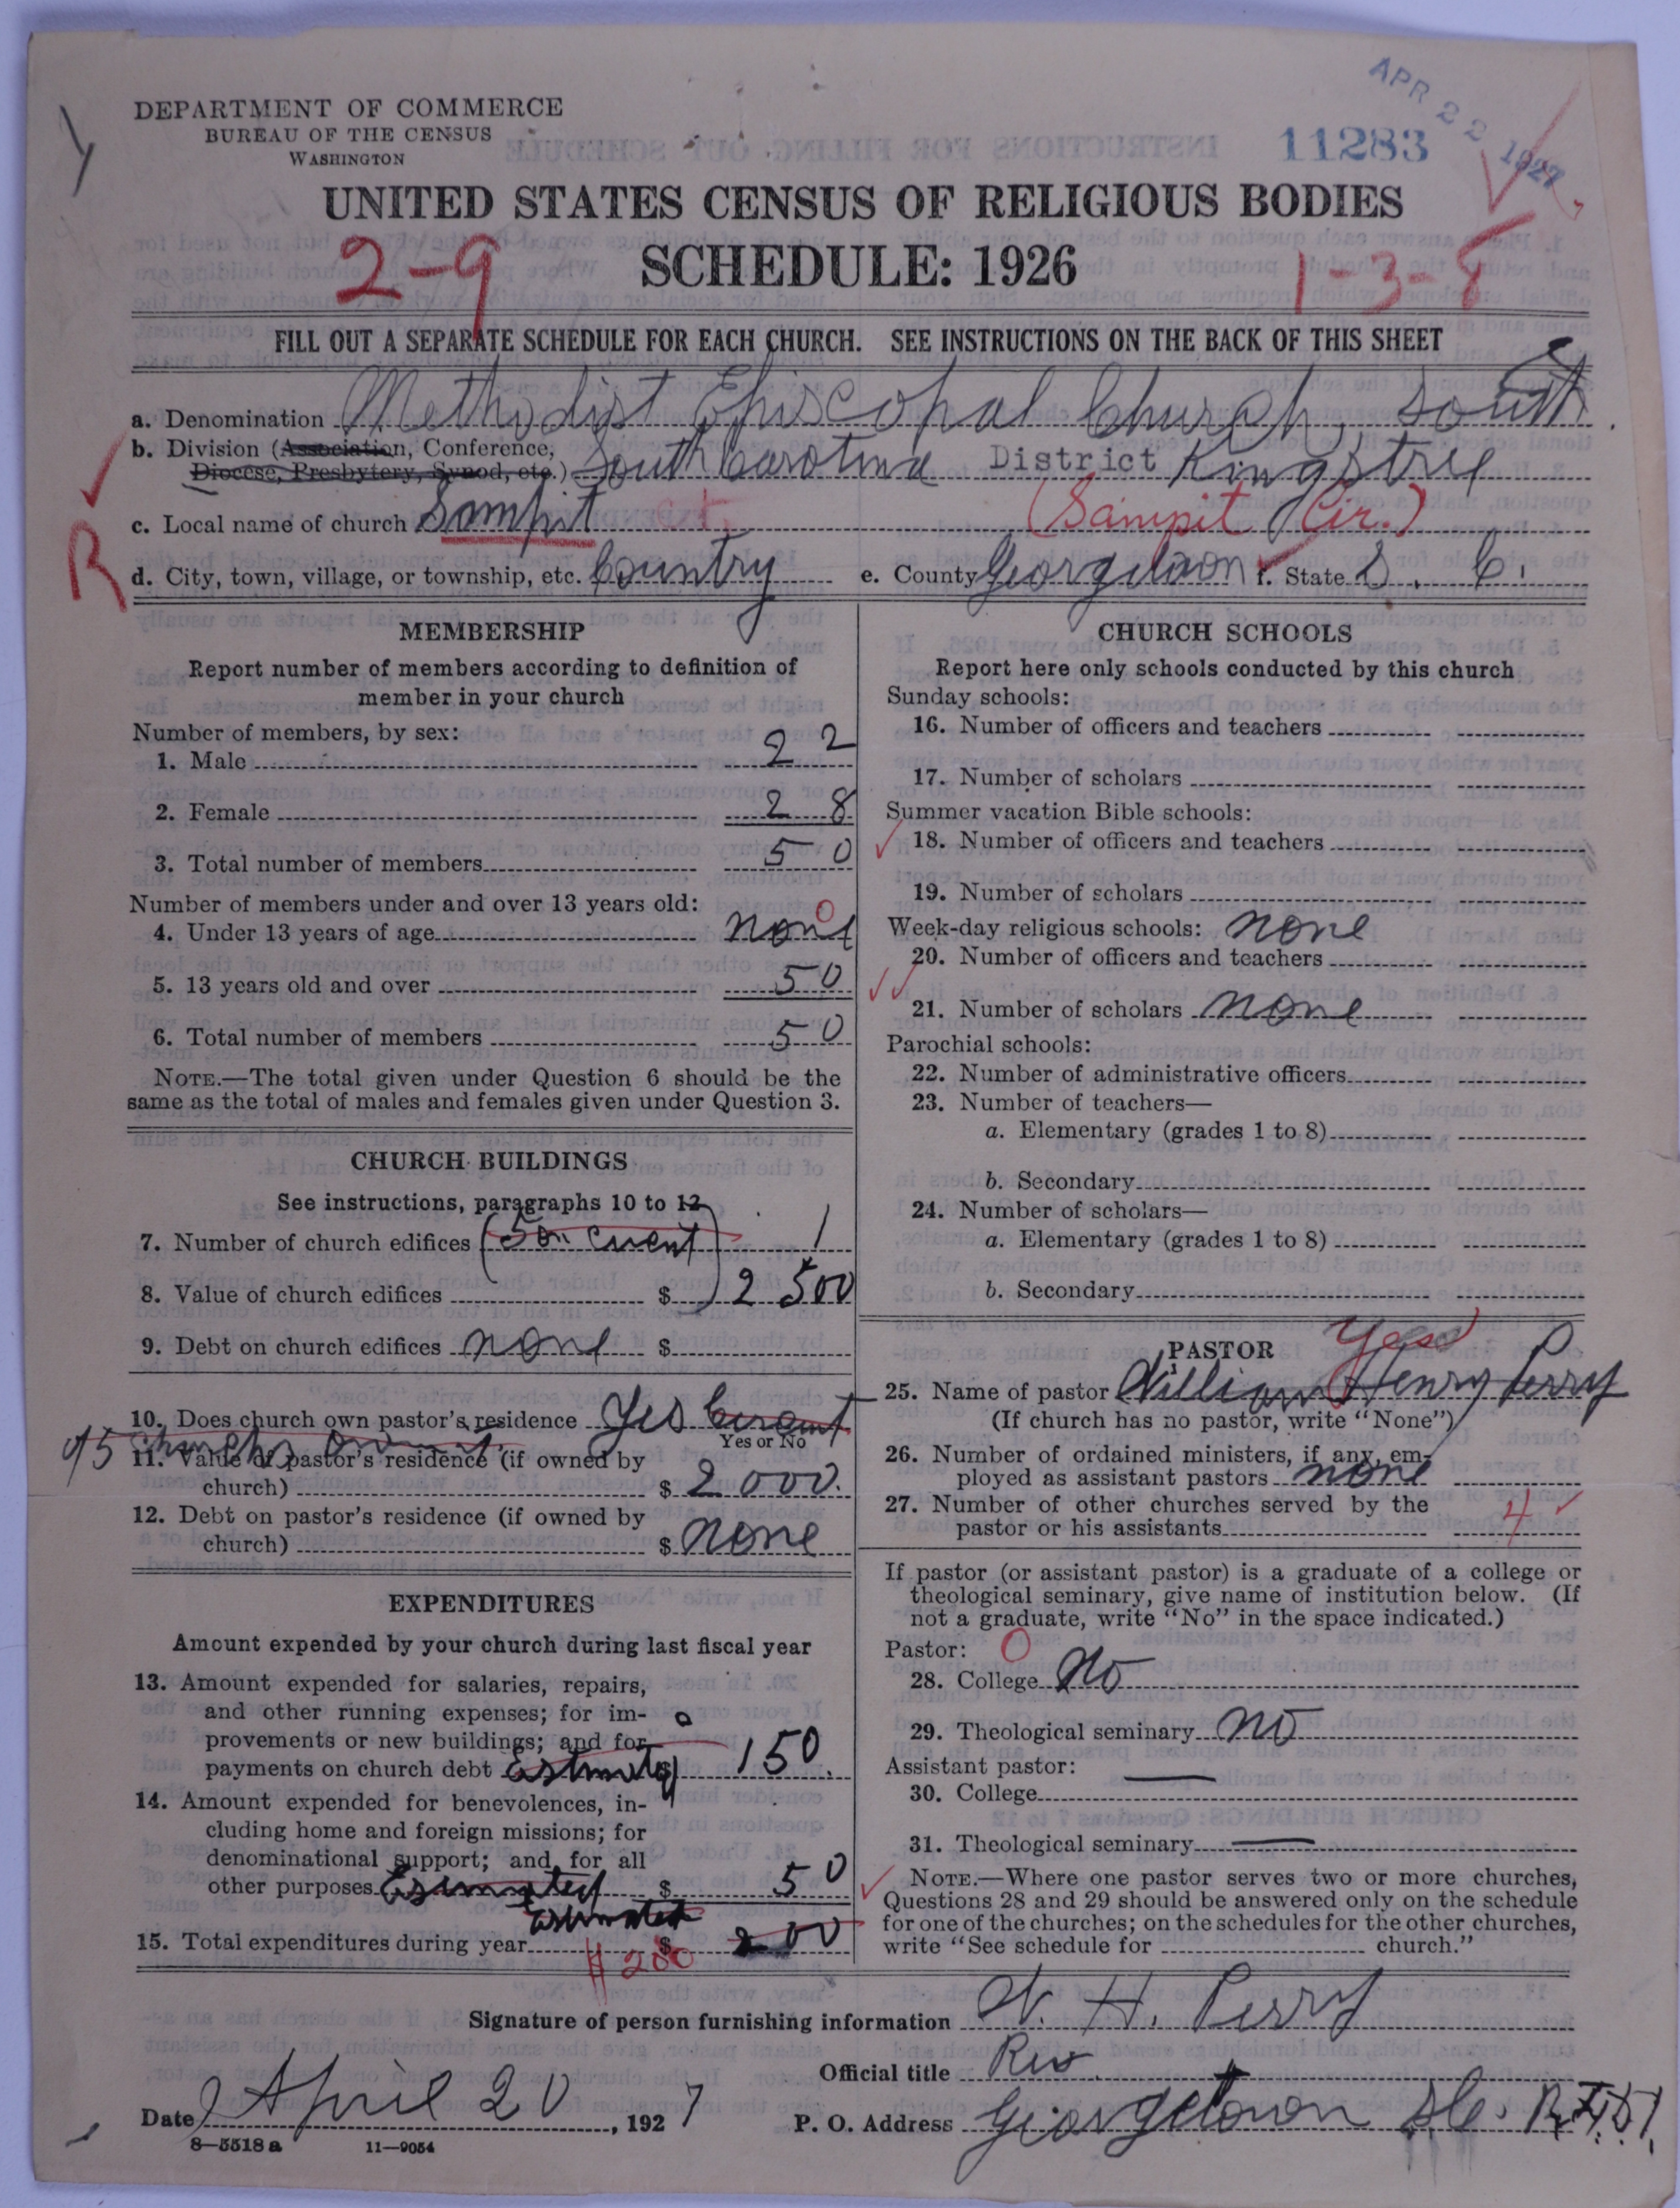 APR 22 1927
DEPARTMENT OF COMMERCE
BUREAU OF THE CENSUS
WASHINGTON
11283
UNITED STATES CENSUS OF RELIGIOUS BODIES
2-9 SCHEDULE: 1926 1-3-8
FILL OUT A SEPARATE SCHEDULE FOR EACH CHURCH. SEE INSTRUCTIONS ON THE BACK OF THIS SHEET
a. Denomination Methodist Episcopal Church, South
b. Division (Association, Conference,
Diocese, Presbytery, Synod, etc.) South Carolina District Kingstree
c. Local name of church Sampit ct. (Sampit Cir.)
R
d. City, town, village, or township, etc. Country e. County Georgetown f. State S. C.
MEMBERSHIP
Report number of members according to definition of
member in your church
Number of members, by sex:
1. Male 22
2. Female 28
3. Total number of members 50
Number of members under and over 13 years old:
4. Under 13 years of age none 0
5. 13 years old and over 50
6. Total number of members 50
NOTE.—The total given under Question 6 should be the
same as the total of males and females given under Question 3.
CHURCH BUILDINGS
See instructions, paragraphs 10 to 12
7. Number of church edifices (5 on Cuent) 1
8. Value of church edifices $ 2500
9. Debt on church edifices none $
10. Does church own pastor's residence Yes
Yes or No
11. Value of pastor's residence (if owned by
church) $ 2000.
12. Debt on pastor's residence (if owned by
church) $ none
EXPENDITURES
Amount expended by your church during last fiscal year
13. Amount expended for salaries, repairs,
and other running expenses; for im-
provements or new buildings; and for
payments on church debt Estimated $ 150.
14. Amount expended for benevolences, in-
cluding home and foreign missions; for
denominational support; and for all
other purposes Estimated $ 50
Estimated
15. Total expenditures during year $ 200
$ 200
CHURCH SCHOOLS
Report here only schools conducted by this church
Sunday schools:
16. Number of officers and teachers
17. Number of scholars
Summer vacation Bible schools:
18. Number of officers and teachers
19. Number of scholars
Week-day religious schools: none
20. Number of officers and teachers
21. Number of scholars none
Parochial schools:
22. Number of administrative officers
23. Number of teachers—
a. Elementary (grades 1 to 8)
b. Secondary
24. Number of scholars—
a. Elementary (grades 1 to 8)
b. Secondary
PASTOR Yes
25. Name of pastor William Henry Perry
(If church has no pastor, write "None")
26. Number of ordained ministers, if any, em-
ployed as assistant pastors none
27. Number of other churches served by the
pastor or his assistants 4
If pastor (or assistant pastor) is a graduate of a college or
theological seminary, give name of institution below. (If
not a graduate, write "No" in the space indicated.)
Pastor: 0
28. College No
29. Theological seminary no
Assistant pastor:
30. College
31. Theological seminary
NOTE.—Where one pastor serves two or more churches,
Questions 28 and 29 should be answered only on the schedule
for one of the churches; on the schedules for the other churches,
write "See schedule for church."
Signature of person furnishing information W. H. Perry
Official title Rev.
Date April 20, 1927 P. O. Address Georgetown S.C. R.F.D.1.
8-5518a 11-9054